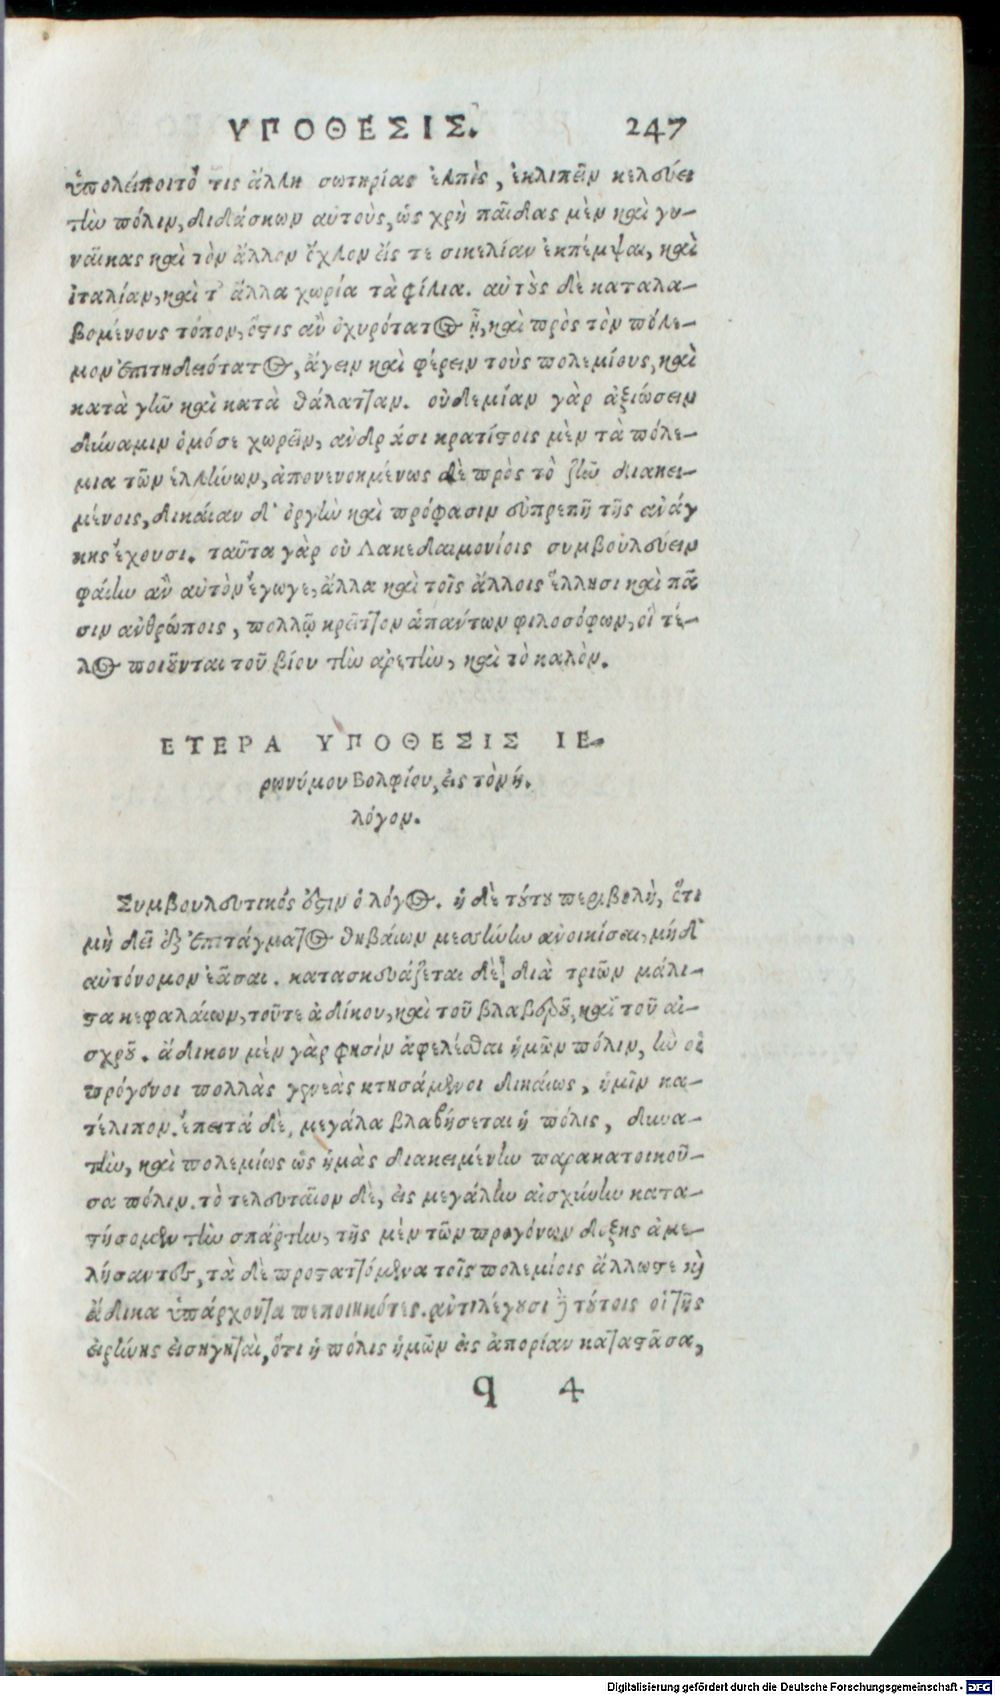 ΥΠΟΘΕΣΙΣ. 247
ὑπολείποιτό τις ἄλλη σωτηρίας ἐλπὶς, ἐκλιπεῖν κελεύει
τὴν πόλιν, διδάσκων αὐτοὺς, ὡς χρὴ παῖδας μὲν καὶ γυ-
ναῖκας καὶ τὸν ἄλλον ὄχλον εἴς τε σικελίαν ἐκπέμψαι, καὶ
ἰταλίαν, καὶ τ' ἄλλα χωρία τὰ φίλια. αὐτοὺς δὲ καταλα-
βομένους τόπον, ὅστις ἂν ὀχυρότατος ᾖ, καὶ πρὸς τὸν πόλε-
μον ἐπιτηδειότατος, ἄγειν καὶ φέρειν τοὺς πολεμίους, καὶ
κατὰ γῆν καὶ κατὰ θάλατταν. οὐδεμίαν γὰρ ἀξιώσειν
δύναμιν ὁμόσε χωρεῖν, ἀνδράσι κρατίστοις μὲν τὰ πόλε-
μια τῶν ἑλλήνων, ἀπονενοημένως δὲ πρὸς τὸ ζῆν διακει-
μένοις, δικαίαν δ' ὀργὴν καὶ πρόφασιν εὐπρεπῆ τῆς ἀνάγ
κης ἔχουσι. ταῦτα γὰρ οὐ Λακεδαιμονίοις συμβουλεύειν
φαίην ἂν αὐτὸν ἔγωγε, ἄλλα καὶ τοῖς ἄλλοις ἕλλησι καὶ πᾶ
σιν ἀνθρώποις, πολλῷ κρεῖττον ἁπάντων φιλοσόφων, οἳ τέ-
λος ποιοῦνται τοῦ βίου τὴν ἀρετὴν, καὶ τὸ καλὸν.
ΕΤΕΡΑ ΥΠΟΘΕΣΙΣ ΙΕ-
ρωνύμου Βολφίου, εἰς τὸν ή.
λόγον.
Συμβουλευτικός ἐστιν ὁ λόγος. ἡ δὲ τούτου περιβολὴ, ὅτι
μὴ δεῖ ἐξ ἐπιτάγματος θηβαίων μεσσήνην ἀνοικίσαι, μήδ'
αὐτόνομον ἐᾶσαι. κατασκευάζεται δὲ διὰ τριῶν μάλι-
στα κεφαλαίων, τοῦτε ἀδίκου, καὶ τοῦ βλαβεροῦ, καὶ τοῦ αἰ-
σχροῦ. ἄδικον μὲν γὰρ φησὶν ἀφελέσθαι ἡμῶν πόλιν, ἣν οἱ
πρόγονοι πολλὰς γενεὰς κτησάμενοι δικαίως, ἡμῖν κα-
τέλιπον. ἔπειτά δὲ, μεγάλα βλαβήσεται ἡ πόλις, δυνα-
τὴν, καὶ πολεμίως ὡς ἡμὰς διακειμένην παρακατοικοῦ-
σα πόλιν. τὸ τελευταῖον δὲ, εἰς μεγάλην αἰσχύνην κατα-
στήσομεν τὴν σπάρτην, τῆς μὲν τῶν προγόνων δόξης ἀμε-
λήσαντες, τὰ δὲ προσταττόμενα τοῖς πολεμίοις ἄλλωστε καὶ
ἄδικα ὑπάρχοντα πεποιηκότες. ἀντιλέγουσι δὲ τούτοις οἱ τῆς
εἰρήνης εἰσηγηταὶ, ὅτι ἡ πόλις ἡμῶν εἰς ἀπορίαν καταστᾶσα,
q 4
Digitalisierung gefördert durch die Deutsche Forschungsgemeinschaft - DFG